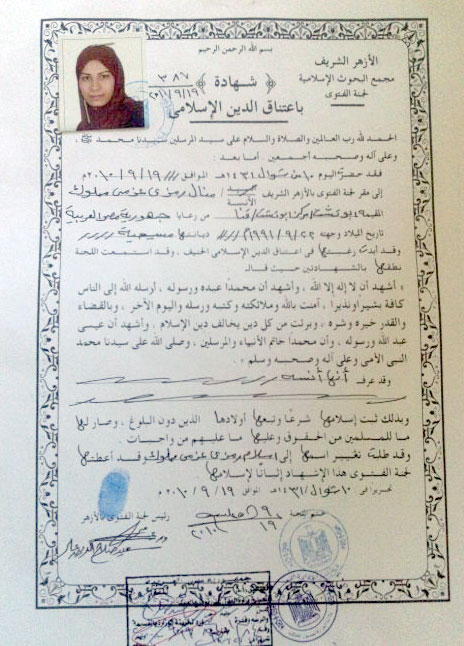 بسم الله الرحمن الرحيم
الأزهر الشريف
مجمع البحوث الإسلامية
لجنة الفتوى
٣٨٧
٢٠١٠/٩/١٩
شهادة
باعتناق الدين الإسلامي
الحمد لله رب العالمين والصلاة والسلام على سيد المرسلين سيدنا محمد ﷺ ،
وعلى آله وصحبه أجمعين . أما بعد :
فقد حضر اليوم ١٠ من شوال ١٤٣١هـ الموافق ٢٠١٠/٩/١٩م
إلى مقر لجنة الفتوى بالأزهر الشريف السيد / الآنسة / منال رمزي عزمي مملوك
المقيمة أبوتشت مركز أبوتشت / قنا من رعايا جمهورية مصر العربية
تاريخ الميلاد وجهته ١٩٩١/٩/٢٢م ديانتها مسيحية
وقد أبدت رغبتها في اعتناق الدين الإسلامي الحنيف ، وقد استمعت اللجنة
نطقها بالشهادتين حيث قالت
« أشهد أن لا إله إلا الله ، وأشهد أن محمداً عبده ورسوله ، أرسله الله إلى الناس
كافة بشيراً ونذيرا ، آمنت بالله وملائكته وكتبه ورسله واليوم الآخر ، وبالقضاء
والقدر خيره وشره ، وبرئت من كل دين يخالف دين الإسلام . وأشهد أن عيسى
عبد الله ورسوله ، وأن محمدا خاتم الأنبياء والمرسلين ، وصلى الله على سيدنا محمد
النبى الأمى وعلى آله وصحبه وسلم » .
وقد عرفه أنها آنسة
وبذلك ثبت إسلامها شرعا وتبعها أولادها الذين دون البلوغ ، وصار لها
ما للمسلمين من الحقوق وعليها ما عليهم من واجبات .
وقد طلبت تغيير اسمها إلى إسلام رمزي عزمي مملوك وقد أعطتها
لجنة الفتوى هذا الإشهاد إثباتا لإسلامها
تحريرا فى ١٠ شوال ١٤٣١هـ الموافق ٢٠١٠/٩/١٩م
ختم اللجنة
رئيس لجنة الفتوى بالأزهر